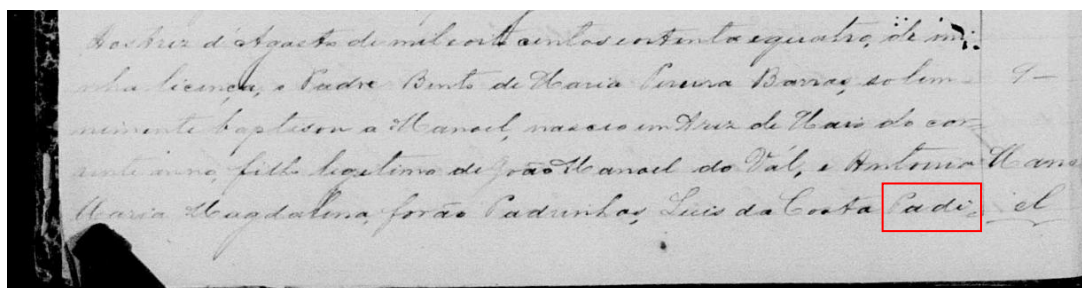 Aos trez d'Agosto de mil oito centos e oitenta e quatro, de mi-
nha licença, o Padre Bento de Maria Pereira Barros, solem-
nemente baptisou a Manoel, nascido em trez de Maio do cor-
rente anno, filho legitimo de João Manoel do Vál, e Antonia
Maria Magdalena, forão Padrinhos, Luis da Costa Padi-
9-
Mano
el